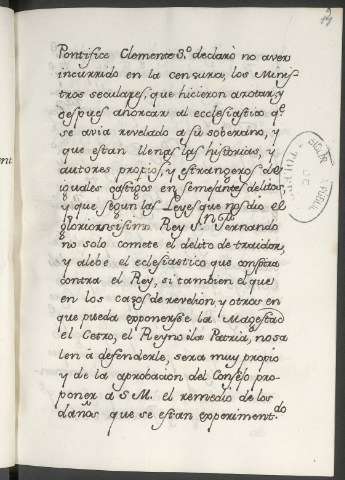 Pontifice Clemente 3.º declarò no aver
incurrido en la censura, los Minis
tros seculares, que hicieron azotar, y
despues ahorcar al ecclesiastico q.e
se avia revelado a su soberano, y
que estan llenas las historias, y
autores propios, y estrangeros de
iguales castigos en semejantes delitos,
y que segun las Leyes que nos dio el
gloriosissimo Rey S.n Fernando
no solo comete el delito de traidor,
y alebe el ecclesiastico que conspira
contra el Rey, si tambien el que
en los casos de revelion, y otros en
que pueda exponerse la Magestad
el Cetro, el Reyno ò la Patria, no sa
len à defenderle, sera muy propio
y de la aprobacion del Consejo pro-
poner a S. M. el remedio de los
daños que se estan experiment.do